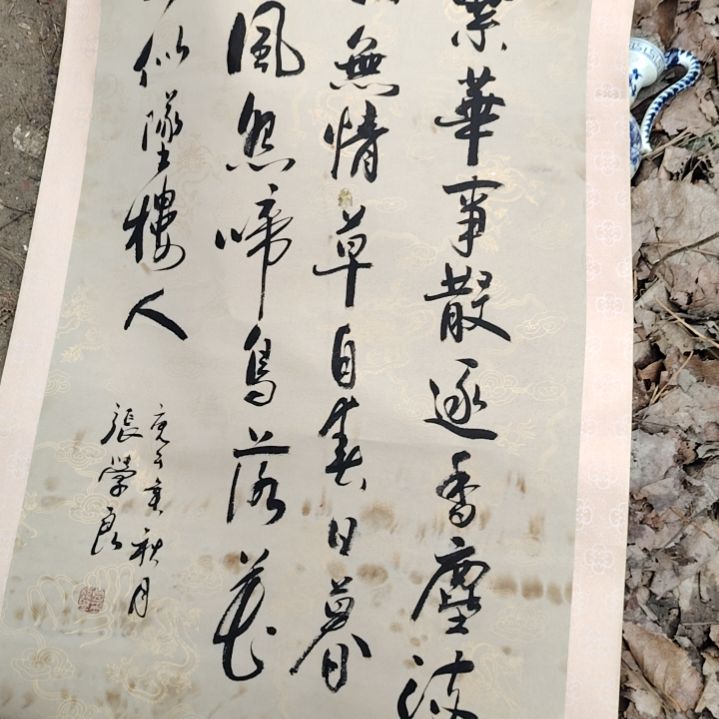 繁華事散逐香塵
無情草自春日暮
風怨啼鳥落花
似墜樓人
秋月
張學良